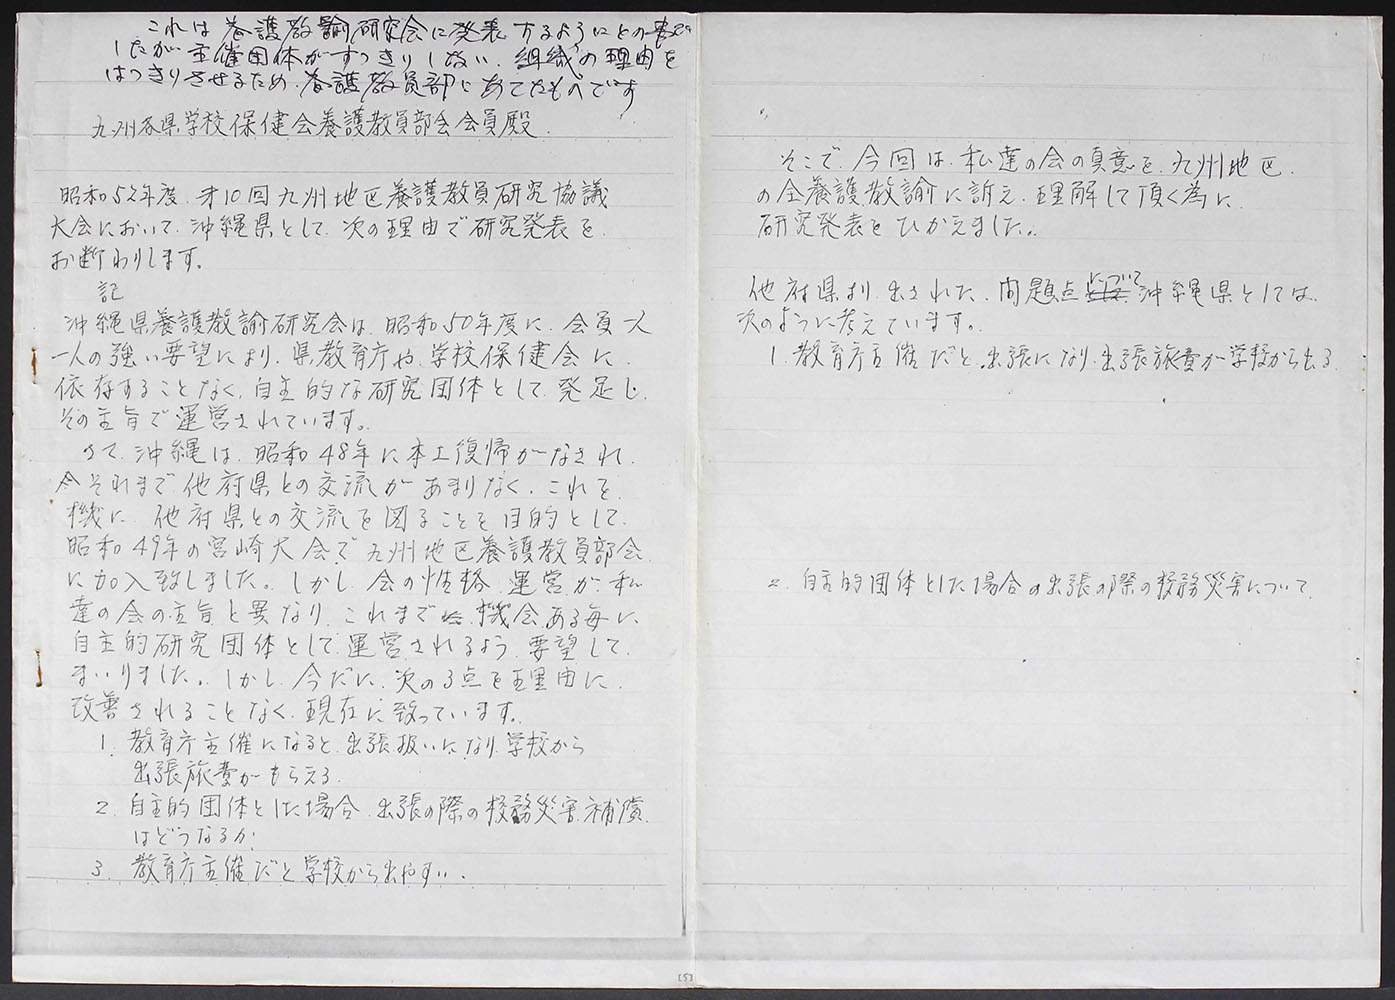 これは養護教諭研究会に発表するようにとの事で
したが主催団体がすっきりしない、組織の理由を
はっきりさせるため、養護教員部にあてたものです
九州各県学校保健会養護教員部会会員殿.
昭和52年度.才10回九州地区養護教員研究協議
大会において、沖縄県として、次の理由で研究発表を
お断わりします。
記
沖縄県養護教諭研究会は、昭和50年度に、会員一人
一人の強い要望により、県教育庁や、学校保健会に、
依存することなく、自主的な研究団体として、発足し、
その主旨で運営されています。
さて、沖縄は、昭和48年に本土復帰がなされ、
それまで、他府県との交流があまりなく、これを、
機に、他府県との交流を図ることを目的として、
昭和49年の宮崎大会で九州地区養護教員部会
に加入致しました。しかし、会の性格、運営が、私
達の会の主旨と異なり、これまで、機会ある毎に、
自主的研究団体として運営されるよう、要望して、
まいりました。しかし、今だに、次の3点を理由に、
改善されることなく、現在に致っています。
1. 教育庁主催になると、出張扱いになり、学校から
出張旅費がもらえる.
2. 自主的団体とした場合、出張の際の校務災害補償、
はどうなるか.
3. 教育庁主催だと学校から出やすい.
そこで、今回は、私達の会の真意を、九州地区、
の全養護教諭に訴え、理解して頂く為に、
研究発表をひかえました。
他府県より、出された、問題点について沖縄県としては、
次のように考えています。
1. 教育庁主催だと、出張になり、出張旅費が学校から出る.
2. 自主的団体とした場合の出張の際の校務災害について.
[5]